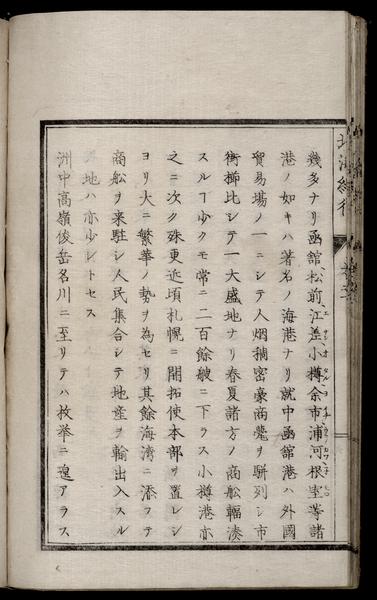 幾多ナリ函舘、松前、江差、小樽、余市、浦河、根室等諸
港ノ如キハ著名ノ海港ナリ就中函舘港ハ外國
貿易場ノ一ニシテ人烟稠密豪商甍ヲ駢列シ市
街櫛比シテ一大盛地ナリ春夏諸方ノ商舩輻湊
スルヿ少クモ常ニ二百餘艘ニ下ラス小樽港亦
之ニ次ク殊更近頃札幌ニ開拓使本部ヲ置レシ
ヨリ大ニ繁華ノ勢ヲ為セリ其餘海濱ニ添フテ
商舩ヲ来駐シ人民集合シテ地産ヲ輸出入スル
地ハ亦少シトセス
洲中高嶺俊岳名川ニ至リテハ枚挙ニ遑アラス